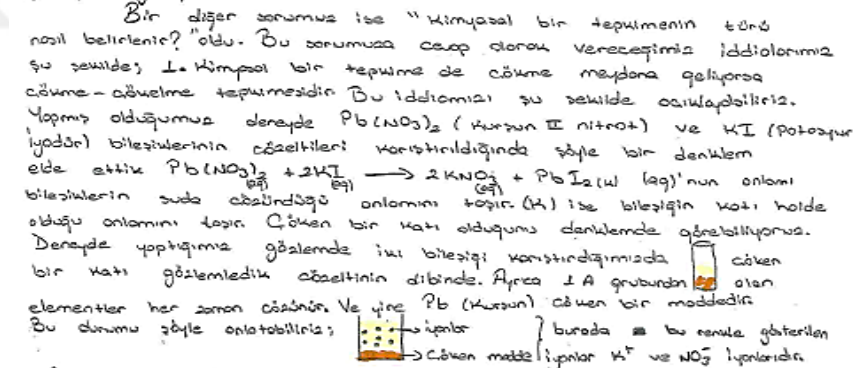 Bir diğer sorumuz ise "Kimyasal bir tepkimenin türü
nasıl belirlenir?" oldu. Bu sorumuza cevap olarak vereceğimiz iddialarımız
şu şekilde; 1. Kimyasal bir tepkime de çökme meydana geliyorsa
çökme-çökelme tepkimesidir. Bu iddiamızı şu şekilde açıklayabiliriz.
Yapmış olduğumuz deneyde Pb(NO3)2 (Kurşun II nitrat) ve KI (Potasyum
iyodür) bileşiklerinin çözeltileri karıştırıldığında şöyle bir denklem
elde ettik Pb(NO3)2 (aq) + 2KI (aq) → 2KNO3 (aq) + PbI2(k) (aq)'nun anlamı
bileşiklerin suda çözündüğü anlamını taşır. (k) ise bileşiğin katı halde
olduğu anlamını taşır. Çöken bir katı olduğunu denklemde görebiliyoruz.
Deneyde yaptığımız gözlemde iki bileşiği karıştırdığımızda çöken
bir katı gözlemledik çözeltinin dibinde. Ayrıca 1A grubundan olan
elementler her zaman çözünür. Ve yine Pb (Kurşun) çöken bir maddedir.
Bu durumu şöyle anlatabiliriz; → iyonlar } burada bu renkle gösterilen
→ Çöken madde iyonlar K+ ve NO3- iyonlarıdır.